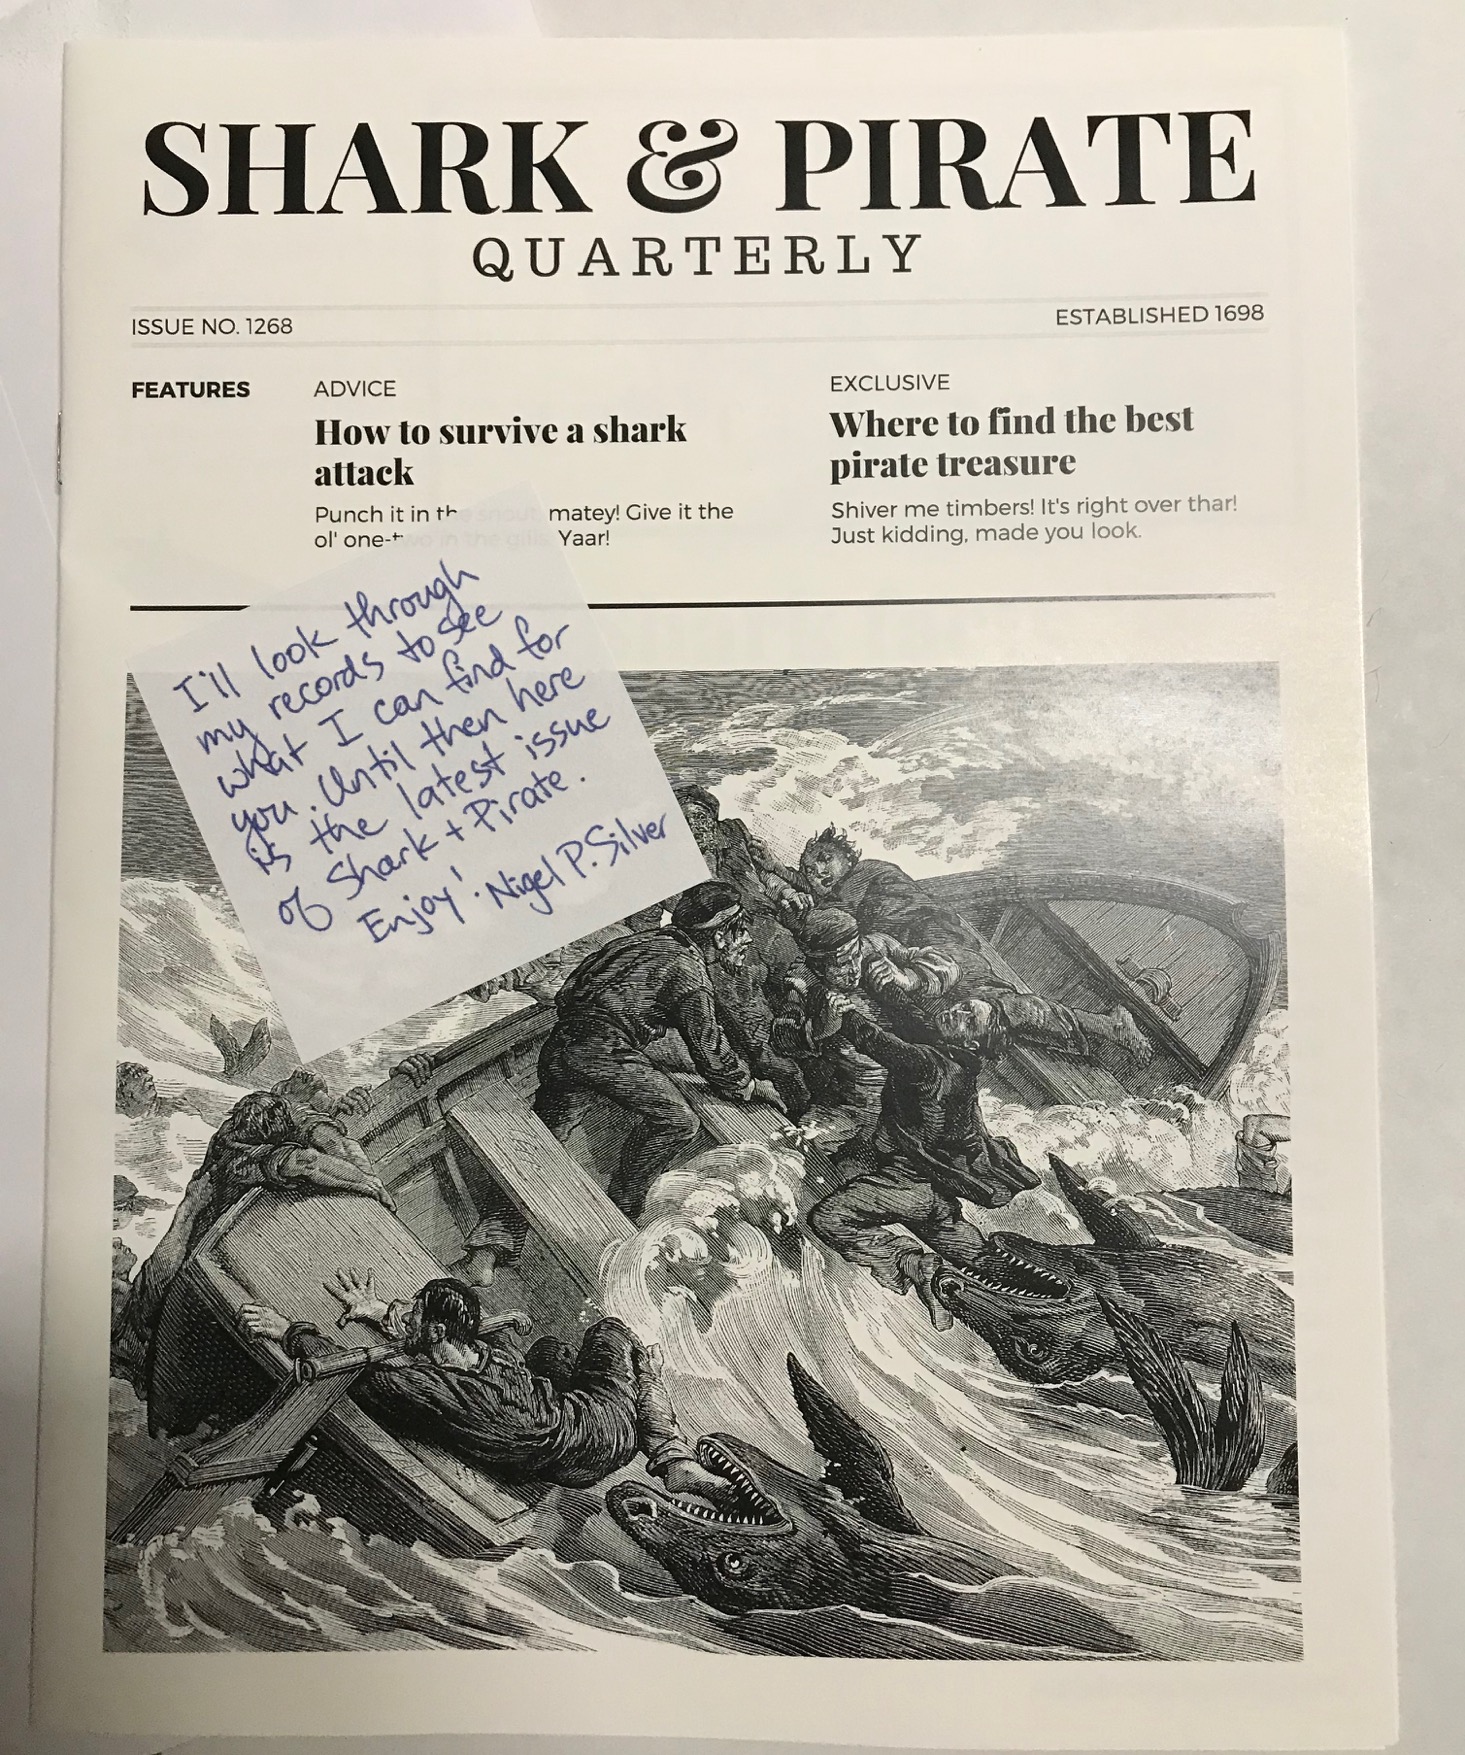 SHARK & PIRATE
QUARTERLY
ISSUE NO. 1268
ESTABLISHED 1698
FEATURES
ADVICE
How to survive a shark
attack
Punch it in the snout, matey! Give it the
ol' one-two in the gills. Yaar!
EXCLUSIVE
Where to find the best
pirate treasure
Shiver me timbers! It's right over thar!
Just kidding, made you look.
I'll look through
my records to see
what I can find for
you. Until then here
is the latest issue
of Shark + Pirate.
Enjoy! · Nigel P. Silver